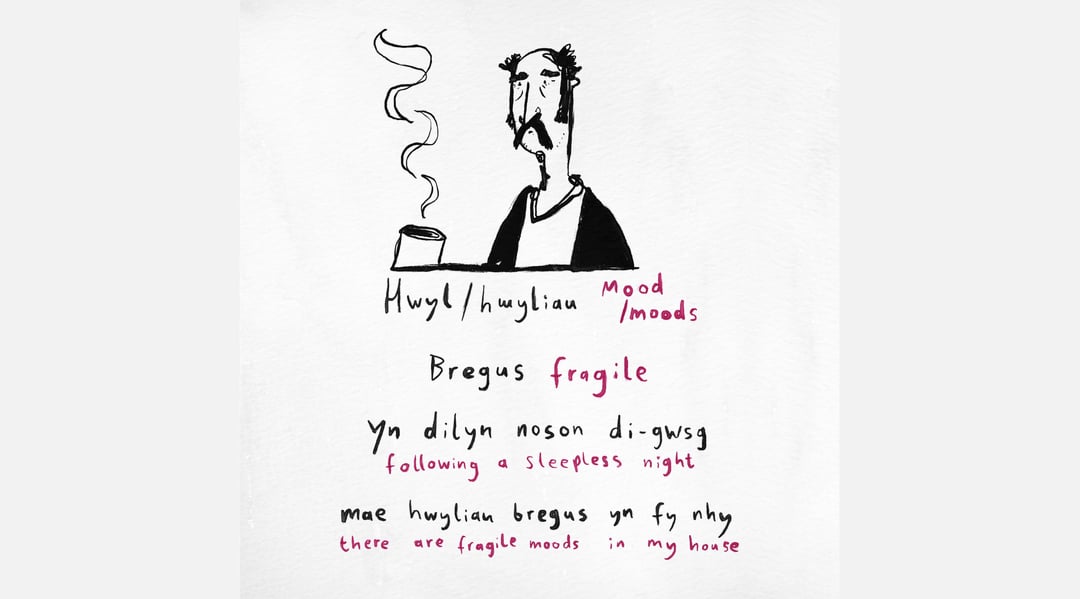 Hwyl/hwyliau Mood
/moods
Bregus fragile
Yn dilyn noson di-gwsg
following a sleepless night
mae hwyliau bregus yn fy nhy
there are fragile moods in my house